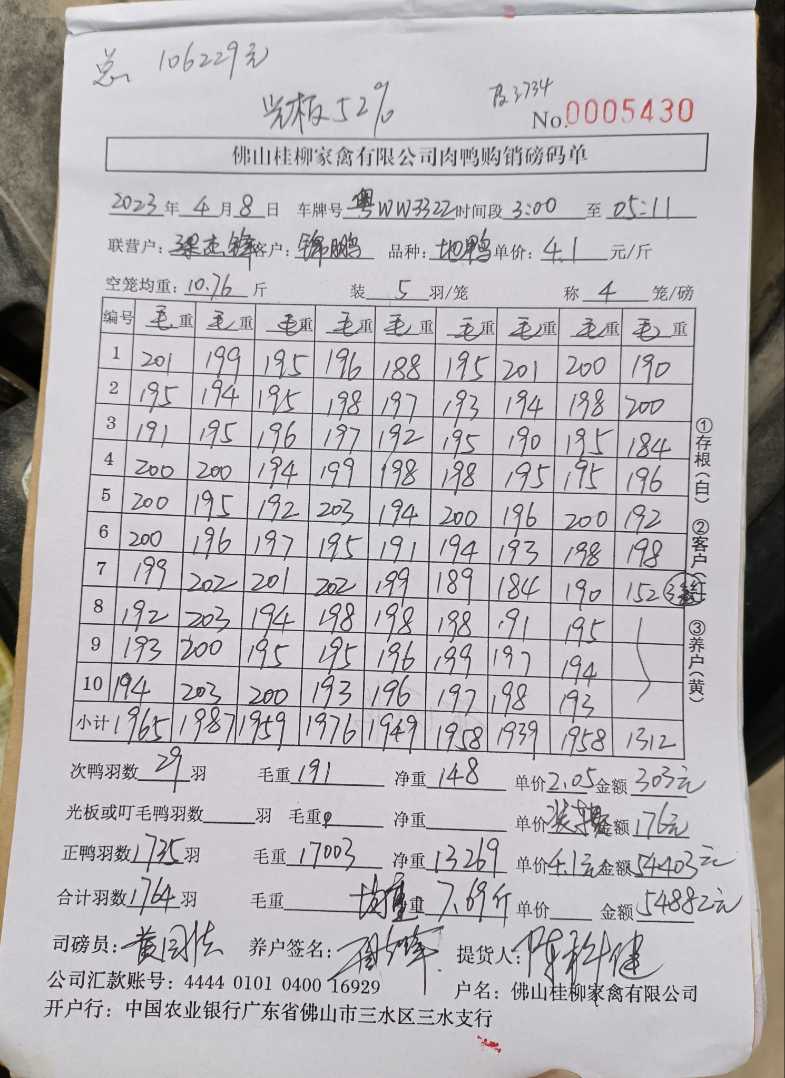 总 106229元
光板52%
3734
No.0005430
佛山桂柳家禽有限公司肉鸭购销磅码单
2023年4月8日 车牌号粤WW3322时间段3:00至05:11
联营户：梁杰锋客户：锦鹏 品种：地鸭单价：4.1元/斤
空笼均重：10.76斤 装5羽/笼 称4笼/磅
编号 毛重 毛重 毛重 毛重 毛重 毛重 毛重 毛重 毛重
1 201 199 195 196 188 195 201 200 190
2 195 194 195 198 197 193 194 198 200
3 191 195 196 197 192 195 190 195 184
4 200 200 194 199 198 198 195 195 196
5 200 195 192 203 194 200 196 200 192
6 200 196 197 195 191 194 193 198 198
7 199 202 201 202 199 189 184 190 152
8 192 203 194 198 198 198 191 195
9 193 200 195 195 196 199 197 194
10 194 203 200 193 196 197 198 193
小计 1965 1987 1959 1976 1949 1958 1939 1958 1312
①存根（白） ②客户（红） ③养户（黄）
次鸭羽数29羽 毛重191 净重148 单价2.05金额303元
光板或叮毛鸭羽数羽 毛重 净重 单价金额176元
正鸭羽数1735羽 毛重17003 净重13269 单价4.1元金额54403元
合计羽数1764羽 毛重 均重 净重7.69斤 单价 金额54882元
司磅员： 养户签名： 提货人：陈科健
公司汇款账号：4444 0101 0400 16929 户名：佛山桂柳家禽有限公司
开户行：中国农业银行广东省佛山市三水区三水支行